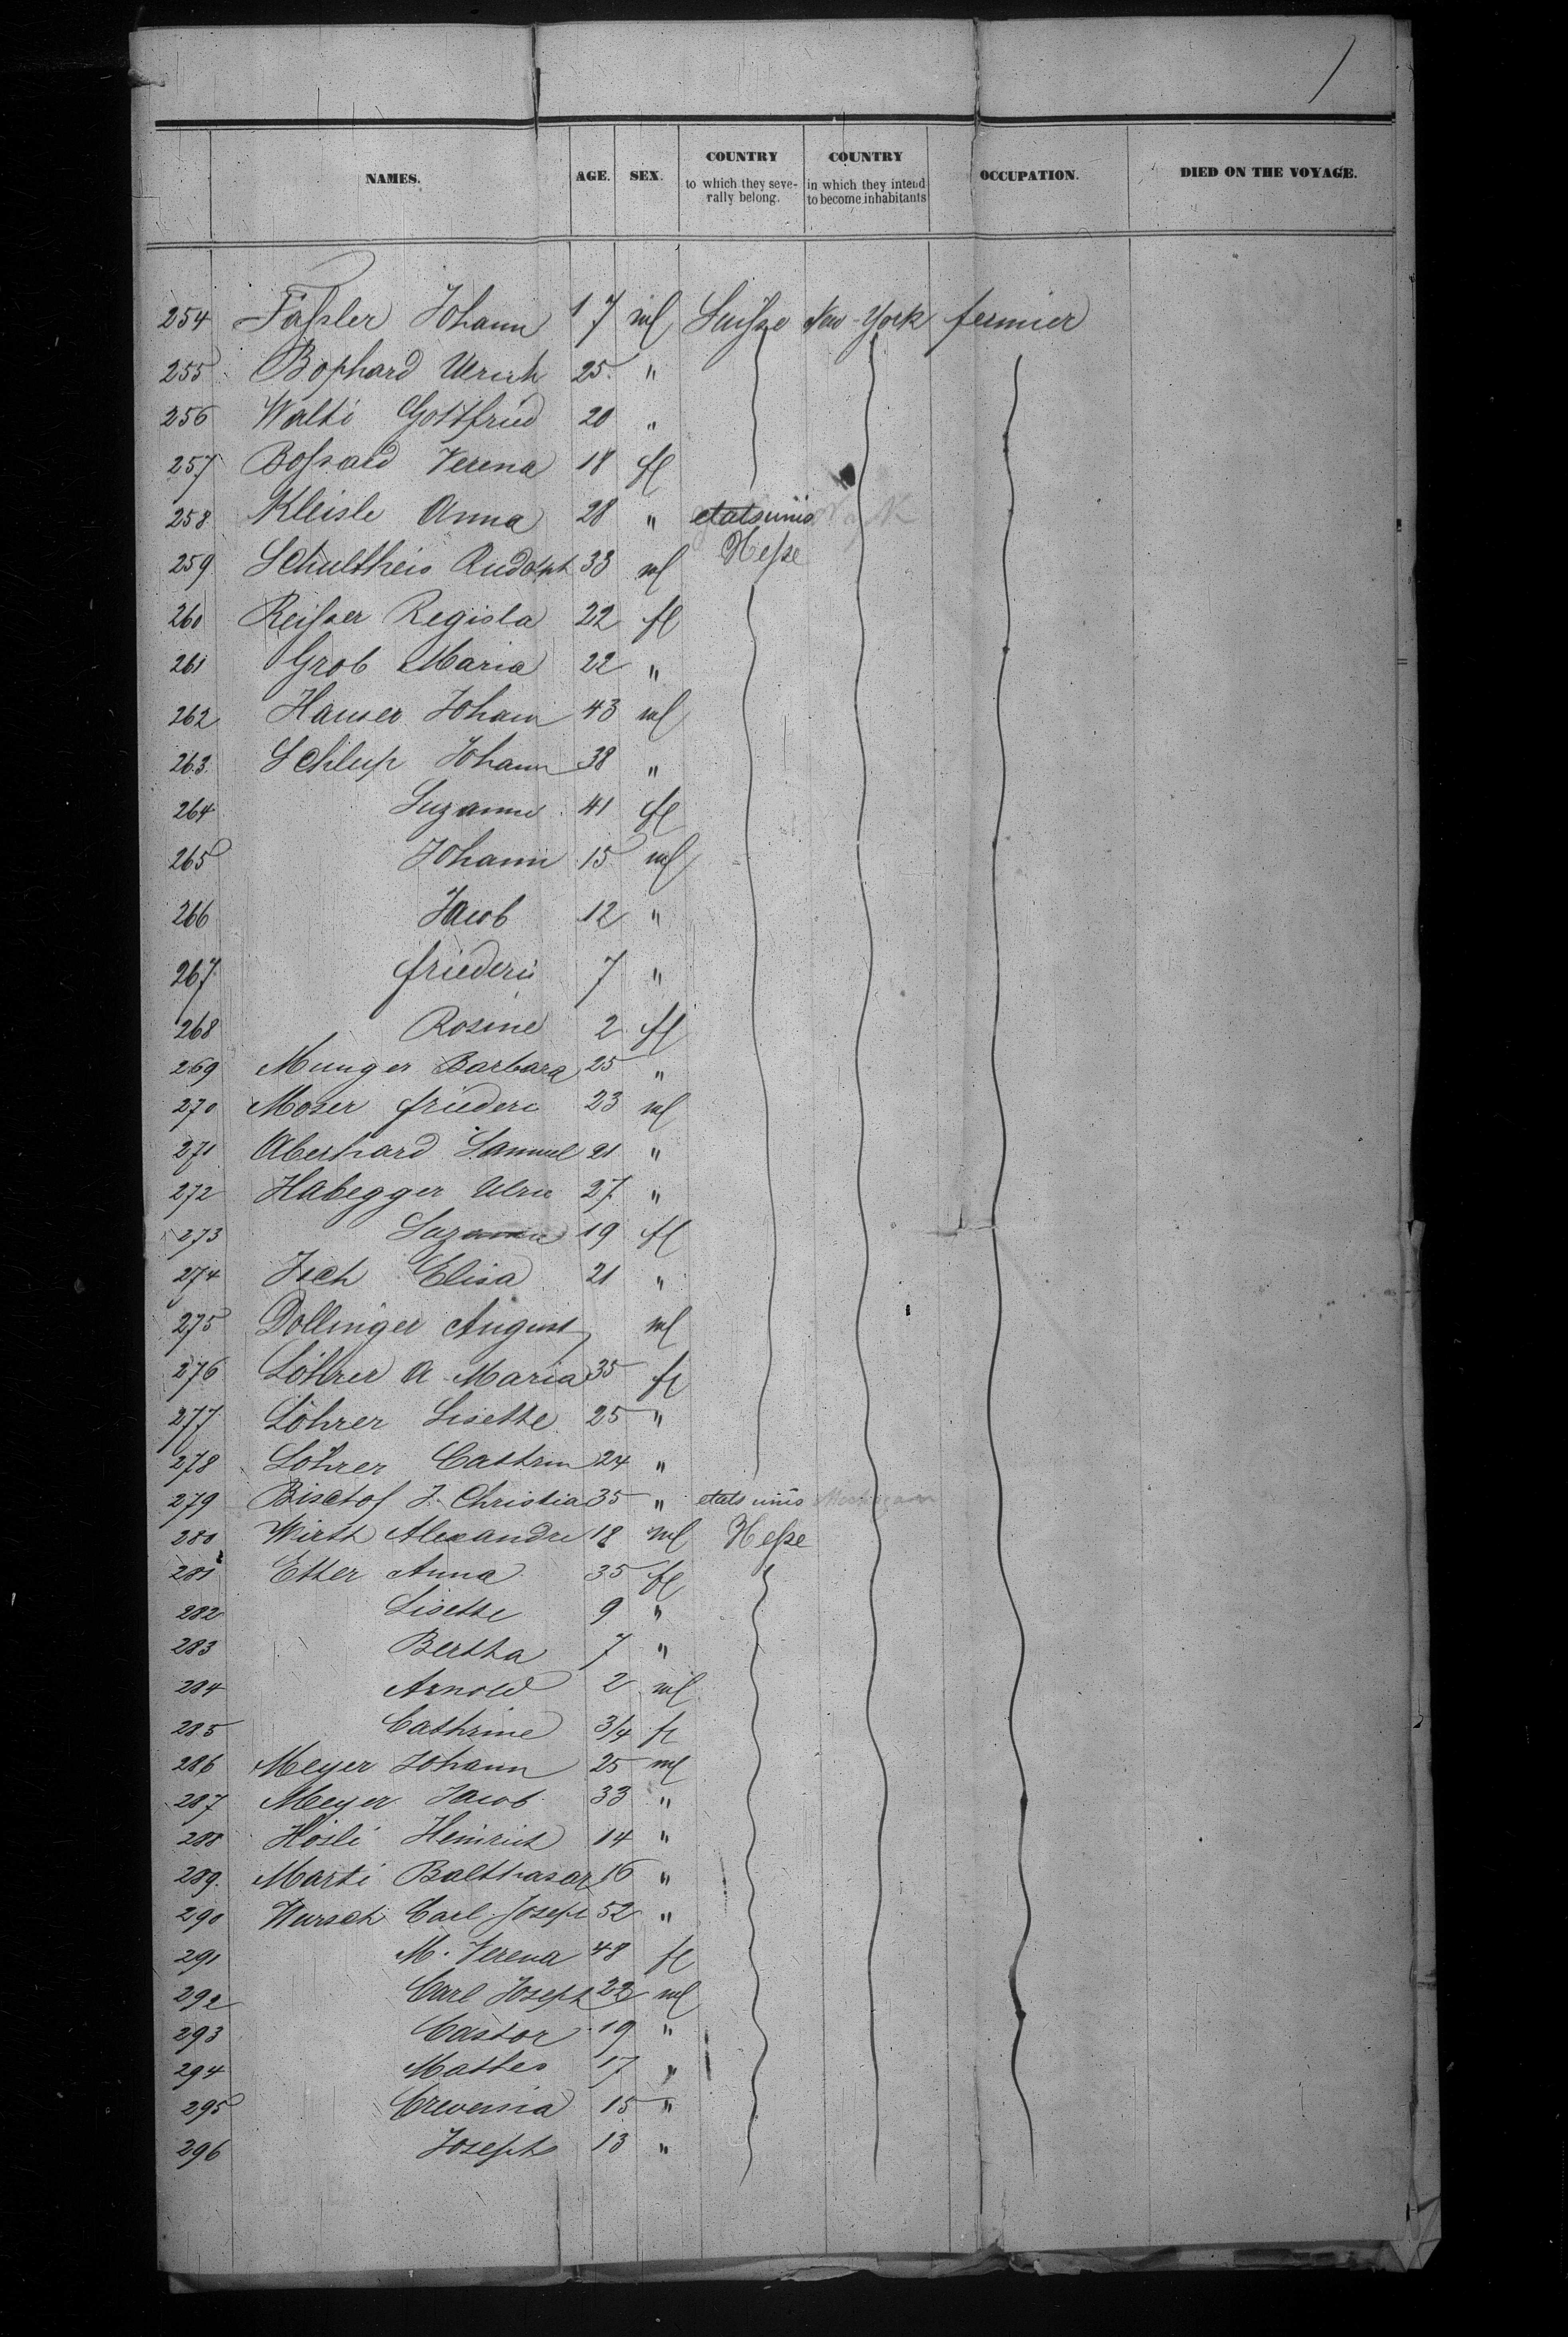 NAMES. AGE. SEX. COUNTRY to which they severally belong. COUNTRY in which they intend to become inhabitants OCCUPATION. DIED ON THE VOYAGE.
254 Faſsler Johann 17 ml Suiſse New-York fermier
255 Boſshard Ulrich 25 "
256 Walti Gottfried 20 "
257 Boſsard Verena 18 fl
258 Kleisle Anna 28 " etats unis
259 Schultheis Rudolph 33 ml Heſse
260 Reiſser Regisla 22 fl
261 Grob Maria 22 "
262 Hauser Johann 43 ml
263 Schlup Johann 38 "
264 Suzanne 41 fl
265 Johann 15 ml
266 Jacob 12 "
267 friederic 7 "
268 Rosine 2 fl
269 Munger Barbara 25 "
270 Moser friederic 23 ml
271 Aberhard Samuel 21 "
272 Habegger Ulric 27 "
273 Suzanne 19 fl
274 Isch Elisa 21 "
275 Dollinger August ml
276 Löhrer A Maria 35 fl
277 Löhrer Lisette 25 "
278 Löhrer Cathrin 24 "
279 Bischof J. Christia 35 " etats unis
280 Wirth Alexandre 18 ml Heſse
281 Etter Anna 35 fl
282 Lisette 9 "
283 Bertha 7 "
284 Arnold 2 ml
285 Cathrine 3/4 fl
286 Meyer Johann 25 ml
287 Meyer Jacob 33 "
288 Hösli Heinrich 14 "
289 Marti Balthasar 16 "
290 Wursch Carl Joseph 52 "
291 M. Verena 48 fl
292 Carl Joseph 22 ml
293 Castor 19 "
294 Mathes 17 "
295 15 "
296 Joseph 13 "